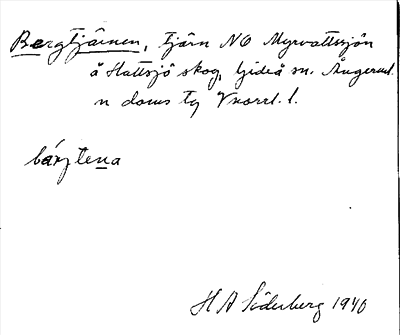 Bergtjärnen, tjärn NO Myrvattssjön
å Hattsjö skog, Gideå sn. Ångerml.
n doms tg Vnorrl. l.
bárjtena
H A Söderberg 1940